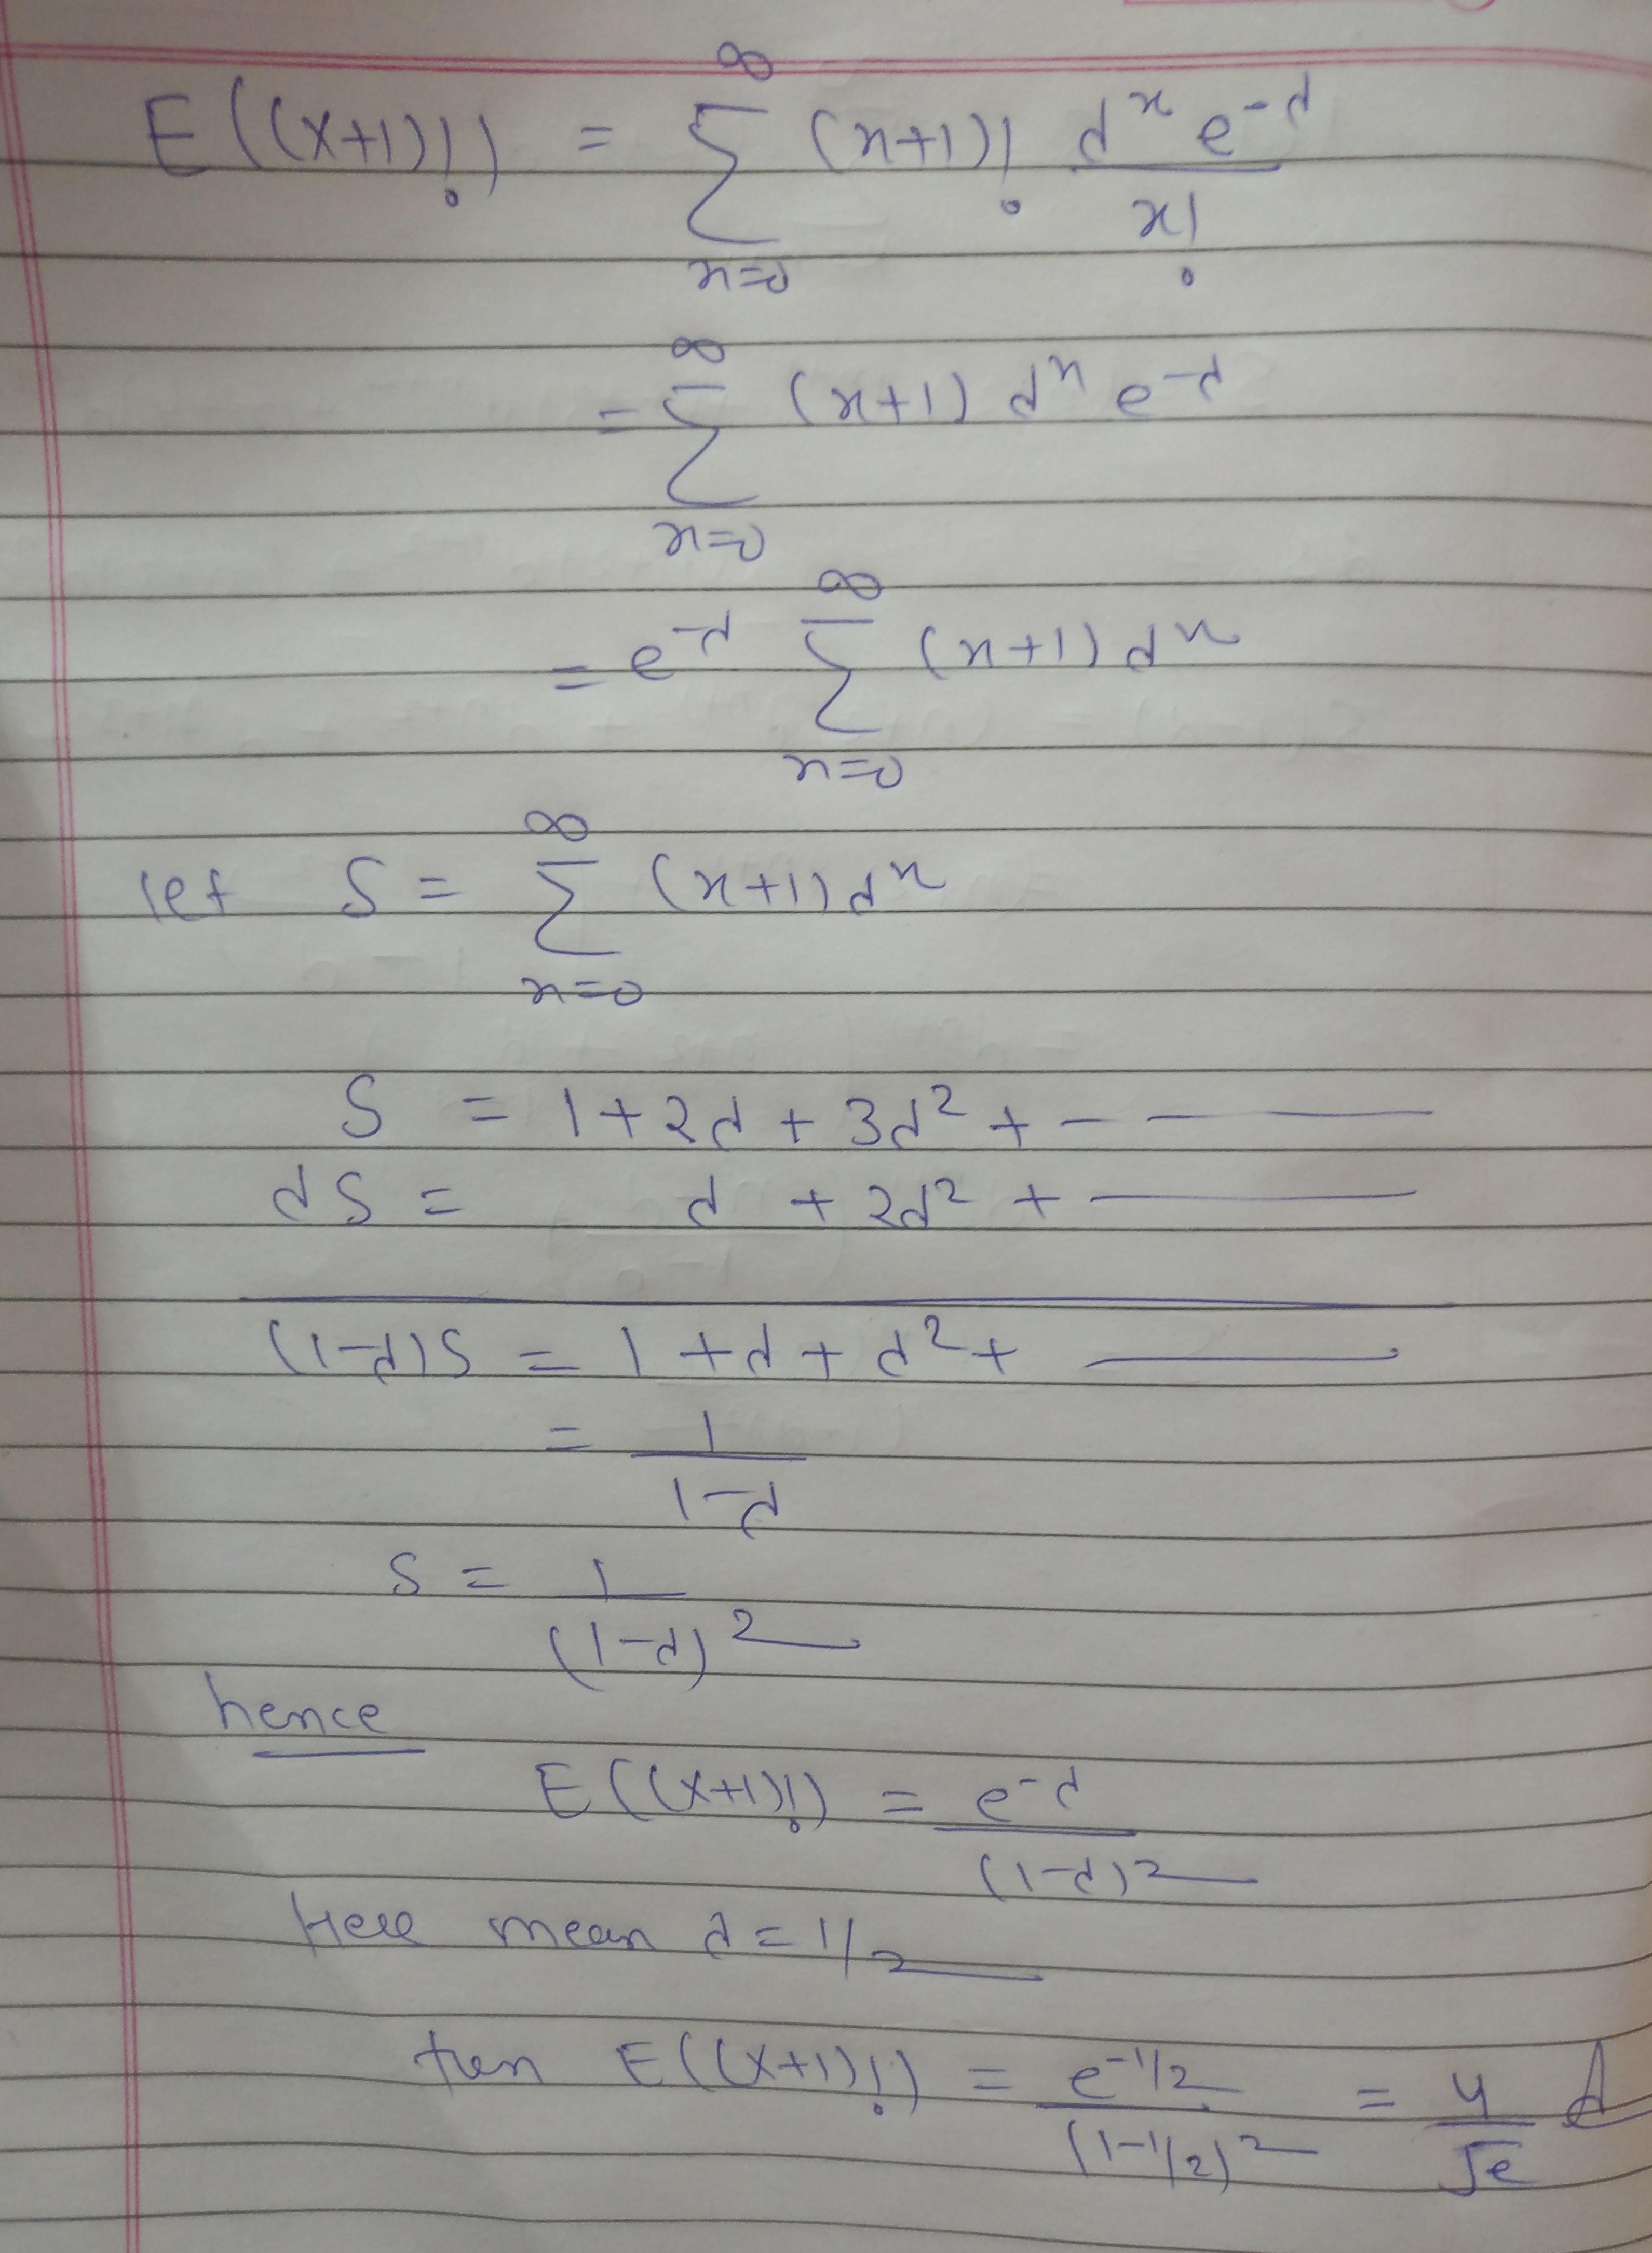 E((X+1)!) = ∑_{x=0}^{∞} (x+1)! λ^x e^{-λ} / x!
= ∑_{x=0}^{∞} (x+1) λ^x e^{-λ}
= e^{-λ} ∑_{x=0}^{∞} (x+1) λ^x
let S = ∑_{x=0}^{∞} (x+1) λ^x
S = 1 + 2λ + 3λ² + - ——
λS = λ + 2λ² + ——
(1-λ)S = 1 + λ + λ² + ——
= 1 / (1-λ)
S = 1 / (1-λ)²
hence
E((X+1)!) = e^{-λ} / (1-λ)²
Here mean λ = 1/2
then E((X+1)!) = e^{-1/2} / (1-1/2)² = 4/√e A